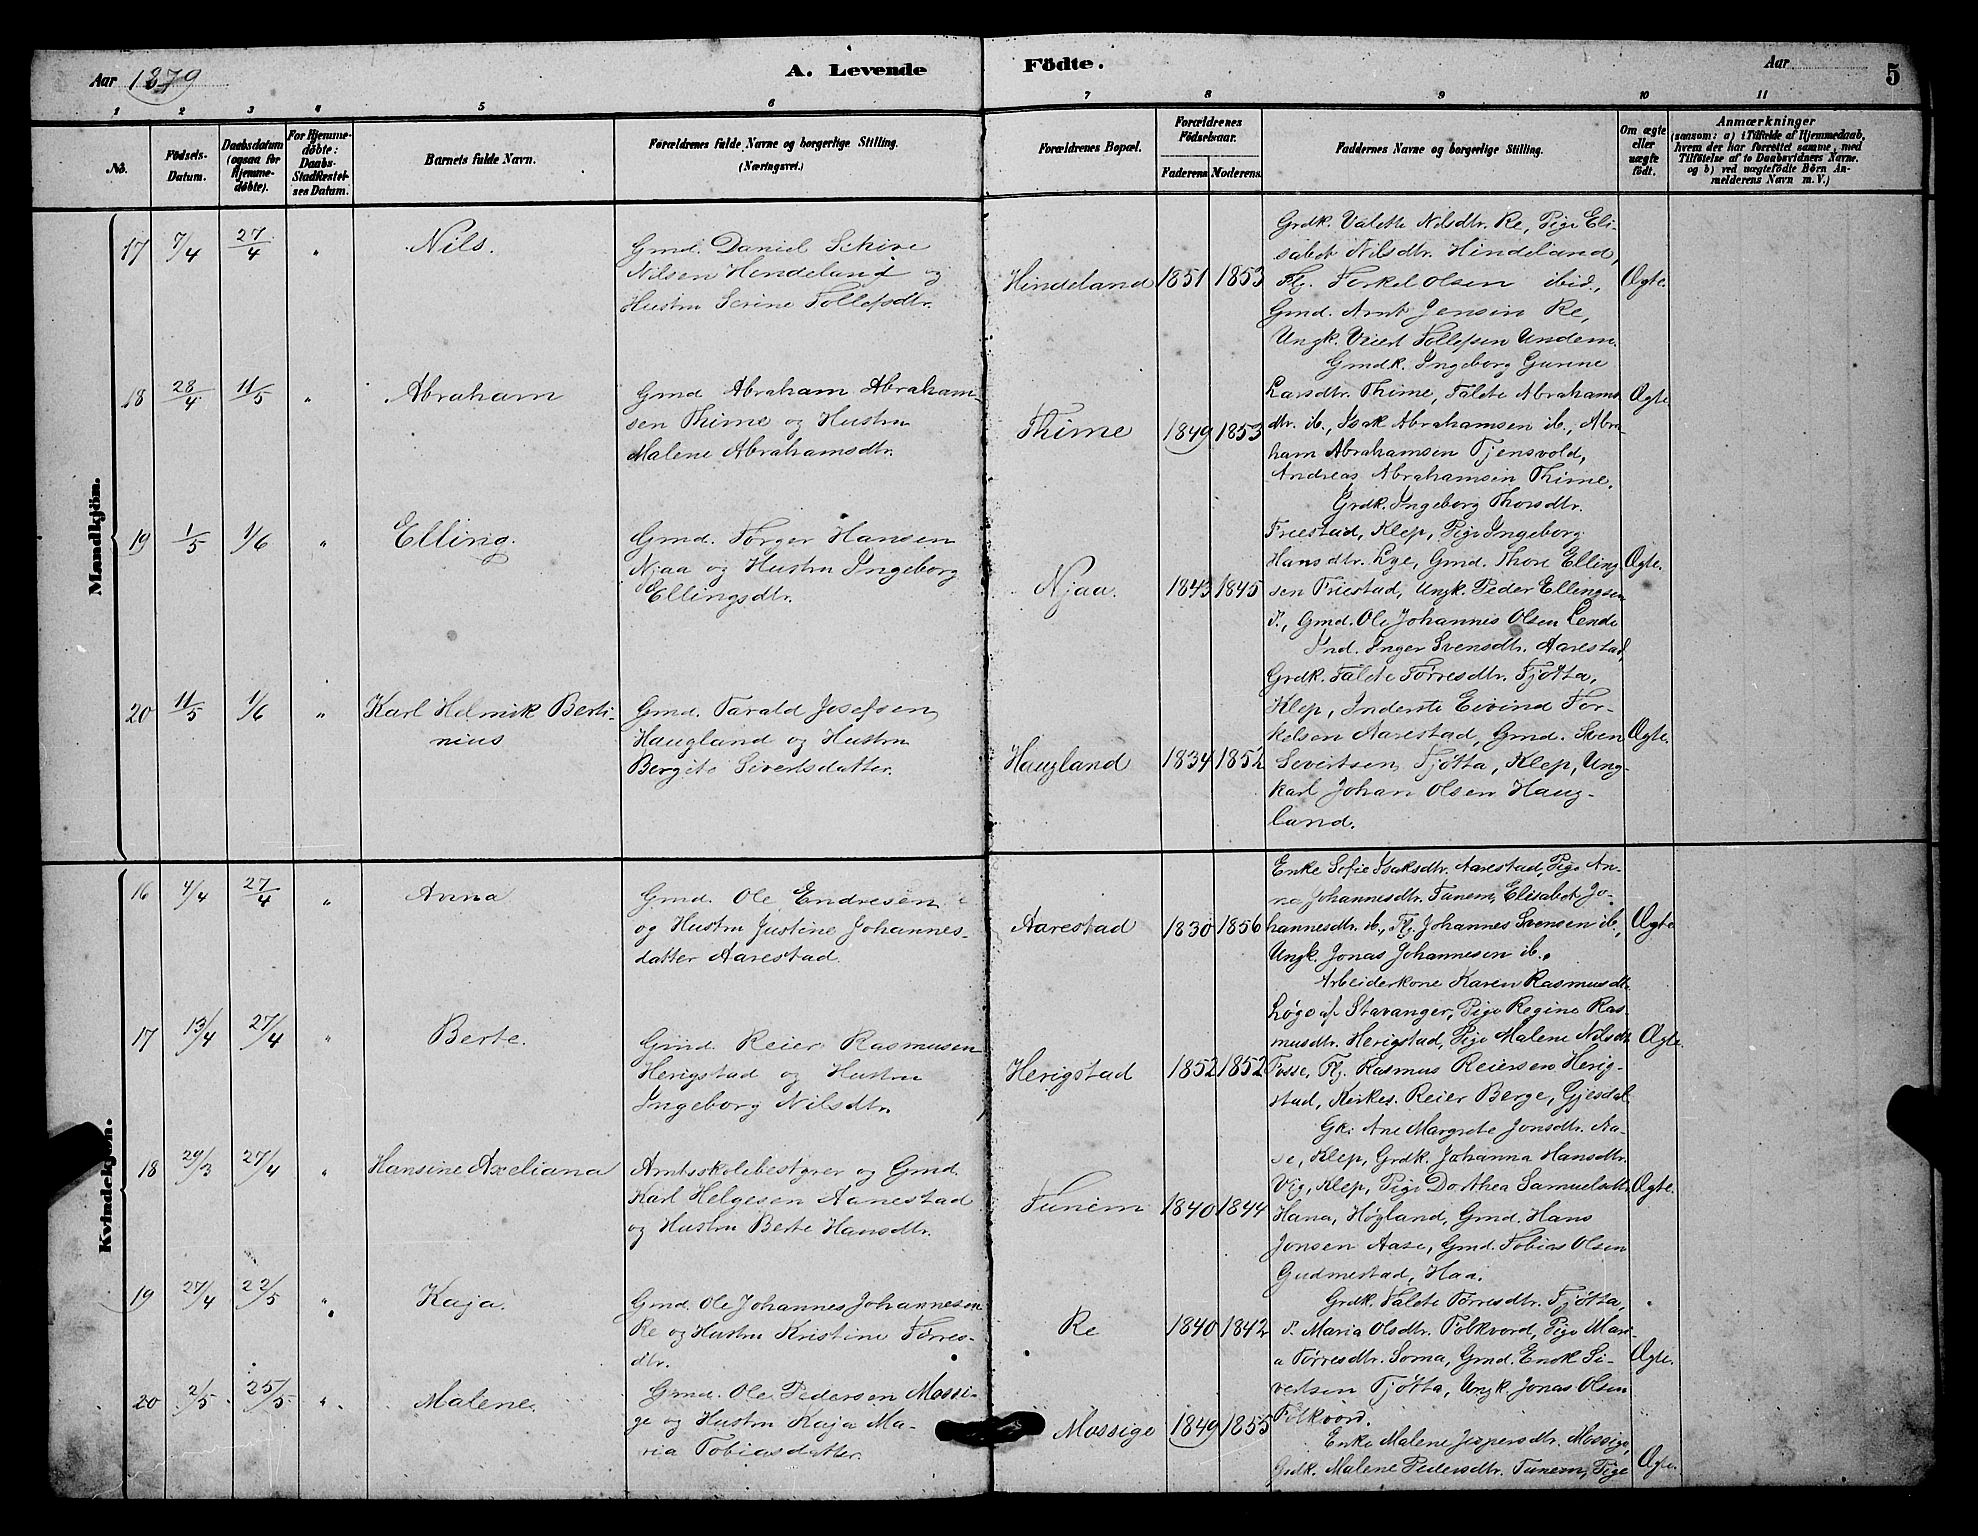 Aar 1879
A. Levende Födte.
Aar
5
1 2 3 4 5 6 7 8 9 10 11
No.
Födsels-Datum.
Daabsdatum (ogsaa for Hjemme-døbte).
For Hjemme-døbte: Daabs-Stadfæstel-ses Datum.
Barnets fulde Navn.
Forældrenes fulde Navne og borgerlige Stilling. (Næringsvei.)
Forældrenes Bopæl.
Forældrenes Födselsaar.
Faderens Moderens
Faddernes Navne og borgerlige Stilling.
Om ægte eller uægte födt.
Anmærkninger
(saasom: a) i Tilfælde af Hjemmedaab, hvem der har forrettet samme, med Tilföielse af to Daabsvidners Navne, og b) ved uægtefödte Börn An-melderens Navn m.V.)
Mandkjön.
17 7/4 27/4 " Nils.
Gmd. Daniel Schive
Nilsen Hindeland og
Hustru Serine Tollefsdtr.
Hindeland 1851 1853
Grdk. Valette Nilsdtr. Re, Pige Eli-
sabet Nilsdtr. Hindeland,
Fg. Torkel Olsen ibid.,
Gmd. Arnt Jensen Re,
Ungk. Viert Tollefsen Undem.
Ægte.
18 28/4 11/5 " Abraham
Gmd Abraham Abraham-
sen Thime og Hustru
Malene Abrahamsdtr.
Thime 1849 1853
Gmdk. Ingeborg Gurine
Larsdtr. Thime, Talete Abrahams
dtr. ib., Isak Abrahamsen ib., Abra-
ham Abrahamsen Tjensvold,
Andreas Abrahamsen Thime.
Ægte.
19 1/5 1/6 " Elling.
Gmd. Torger Hansen
Njaa og Hustru Ingeborg
Ellingsdtr.
Njaa. 1843 1845
Grdk. Ingeborg Thorsdtr.
Friestad, Klep, Pige Ingeborg
Hansdtr. Lye, Gmd. Thore Elling
sen Friestad, Ungk. Peder Ellingsen
F., Gmd. Ole Johannes Olsen Lende
Ægte.
20 11/5 1/6 " Karl Helmik Berti-
nius
Gmd. Tarald Josefsen
Haugland og Hustru
Bergite Sivertsdatter.
Haugland 1834 1852
Ind. Inger Svensdtr. Aarestad,
Grdk. Talete Tørresdtr. Tjøtta,
Klep, Inderste Eivind Tor-
kelsen Aarestad, Gmd. Sven
Sivertsen Tjøtta, Klep, Ung-
karl Johan Olsen Haug-
land.
Ægte.
Kvindekjön.
16 4/4 27/4 " Anna
Gmd. Ole Endresen
og Hustru Justine Johannes-
datter Aarestad.
Aarestad 1830 1856
Enke Sofie Isaksdtr. Aarestad, Pige An-
na Johannesdtr. Tunem, Elisabet Jo-
hannesdtr. ib., Fg. Johannes Svensen ib.,
Ungk. Jonas Johannesen ib.
Ægte
17 13/4 27/4 " Berte.
Gmd. Reier Rasmusen
Herigstad og Hustru
Ingeborg Nilsdtr.
Herigstad 1852 1852
Arbeiderkone Karen Rasmusdtr.
Løgo af Stavanger, Pige Regine Ras-
musdtr. Herigstad, Pige Malene Nilsdtr
Fosse, Fg. Rasmus Reiersen Herig-
stad, Kirkes. Reier Berge, Gjesdal.
Ægte.
18 29/3 27/4 " Hansine Axeliana
Amtsskolebestyrer og Gmd.
Karl Helgesen Aanestad
og Hustru Berte Hansdtr.
Tunem 1840 1844
Gk. Ane Margrete Jonsdtr. Aa-
se, Klep, Grdk. Johanna Hansdtr.
Vig, Klep, Pige Dorthea Samuelsdtr.
Hana, Høgland, Gmd. Hans
Jonsen Aase, Gmd. Tobias Olsen
Gudmestad, Haa.
Ægte.
19 27/4 22/5 " Kaja.
Gmd. Ole Johannes Johannesen
Re og Hustru Kristine Tørres-
dtr.
Re 1840 1842
Grdk. Talete Tørresdtr. Tjøtta,
P. Maria Olsdtr. Folkvord, Pige Mari-
a Tørresdtr. Soma, Gmd. Enok Si-
vertsen Tjøtta, Ungk. Jonas Olsen
Folkvord.
Ægte.
20 2/5 25/5 " Malene.
Gmd. Ole Pedersen Mossi-
ge og Hustru Kaja Ma-
ria Tobiasdatter.
Mossige 1849 1855
Enke Malene Jespersdtr. Mossige,
Grdk. Malene Pedersdtr. Tunem, Pige
Ægte.